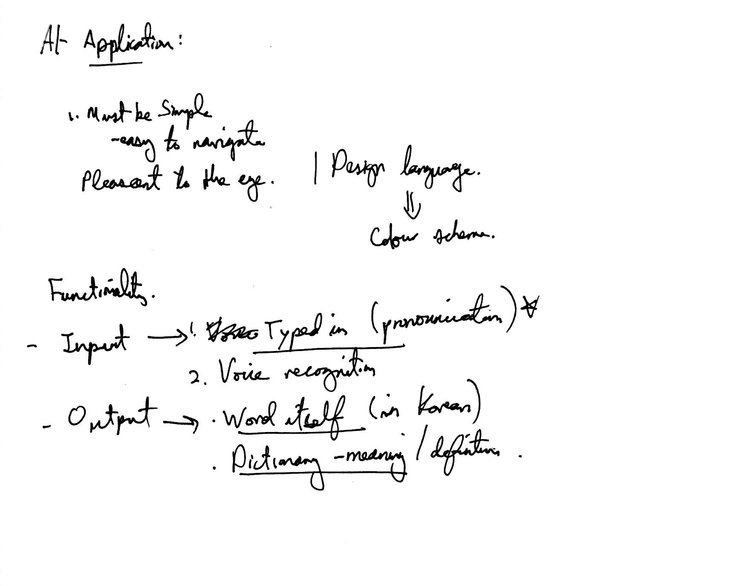 AI- Application:
1. Must be Simple
-easy to navigate
Pleasant to the eye. | Design language.
⇓
Colour scheme.
Functionality.
- Input → 1. Typed in (pronounication) ☆
2. Voice recognition
- Output → . Word itself (in Korean)
. Dictionary -meaning / definition.